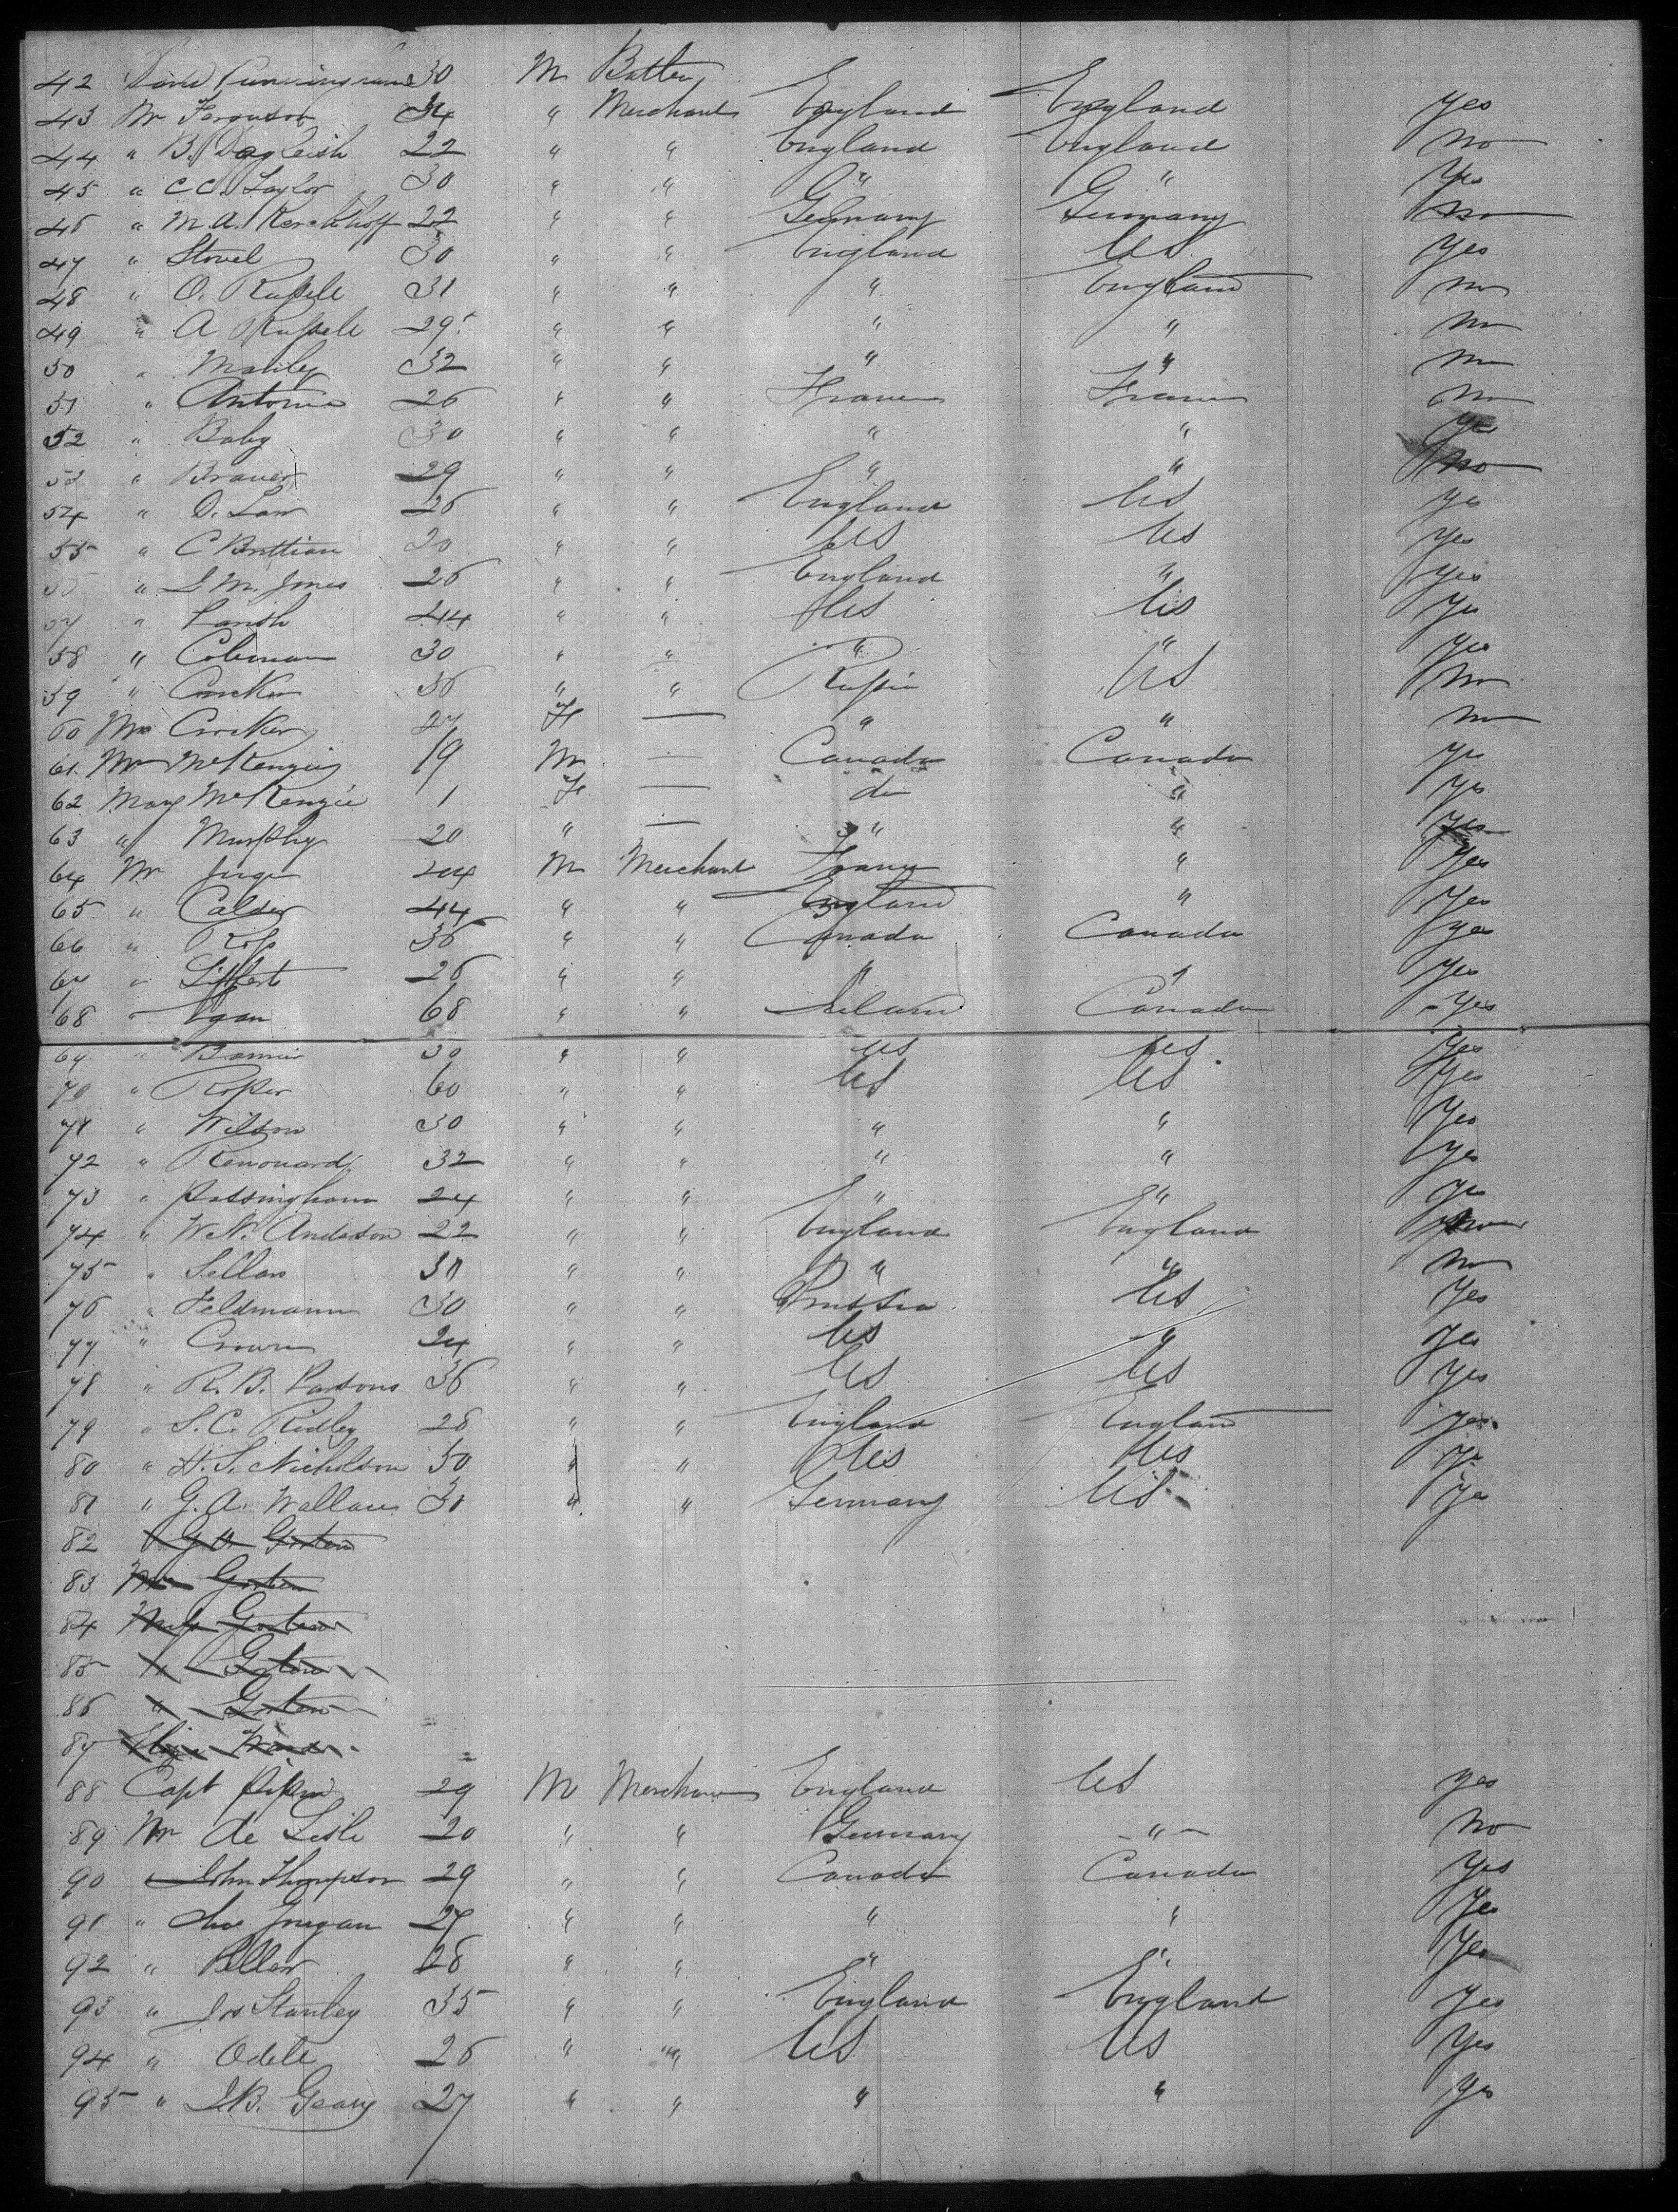 42 David Cunningham 30 M Butler
43 Mr Ferguson 34 " Merchant England England yes
44 " B. Dagleish 22 " " England England no
45 " C C. Taylor 30 " " " " yes
46 " M. A. Kerchhoff 22 " " Germany Germany no
47 " Stovel 30 " " England US yes
48 " O. Russell 31 " " " England no
49 " A Russell 29 " " " " no
50 " 32 " " " " no
51 " Antoine 26 " " France France no
52 " Baby 30 " " " " yes
53 " Brauer 29 " " " " no
54 " D. Law 26 " " England US yes
55 " C Brittian 20 " " US US yes
56 " S M. Jones 26 " " England " yes
57 " Parish 44 " " US US yes
58 " Coleman 30 " " " " yes
59 " Crocker 36 " " Russia US no
60 Mrs Crocker 27 F — " " no
61 Mr McKenzie 19 M — Canada Canada yes
62 Mary McKenzie 1 F — do " yes
63 " Murphy 20 " — " " yes
64 Mr 44 M Merchant France " yes
65 " Calder 44 " " England " yes
66 " Ross 36 " " Canada Canada yes
67 " 26 " " " " yes
68 " Egan 68 " " Ireland Canada yes
69 " 30 " " US US yes
70 " Roper 60 " " US US yes
71 " Wilson 30 " " " " yes
72 " Renouard 32 " " " " yes
73 " Passingham 24 " " " " yes
74 " W. N. Anderson 22 " " England England
75 " Sellars 30 " " " " no
76 " Feldmann 30 " " Prussia US yes
77 " Crown 24 " " US " yes
78 " R. B. Parsons 36 " " US US yes
79 " S. C. Ridley 28 " " England England yes
80 " H. S. Nicholson 30 " " US US yes
81 " G. A. Wallace 30 " " Germany US yes
82 " Gorten
83 Mrs Gorten
84 Miss Gorten
85 " Gorten
86 " Gorten
87 Eliza
88 Capt 29 M Merchant England US yes
89 Mr de Lisle 20 " " Germany " no
90 " John Thompson 29 " " Canada Canada yes
91 " 27 " " " " yes
92 " Pellow 28 " " " " yes
93 " Jos Stanley 35 " " England England yes
94 " Odell 26 " " US US yes
95 " J. B. Geary 27 " " " " yes